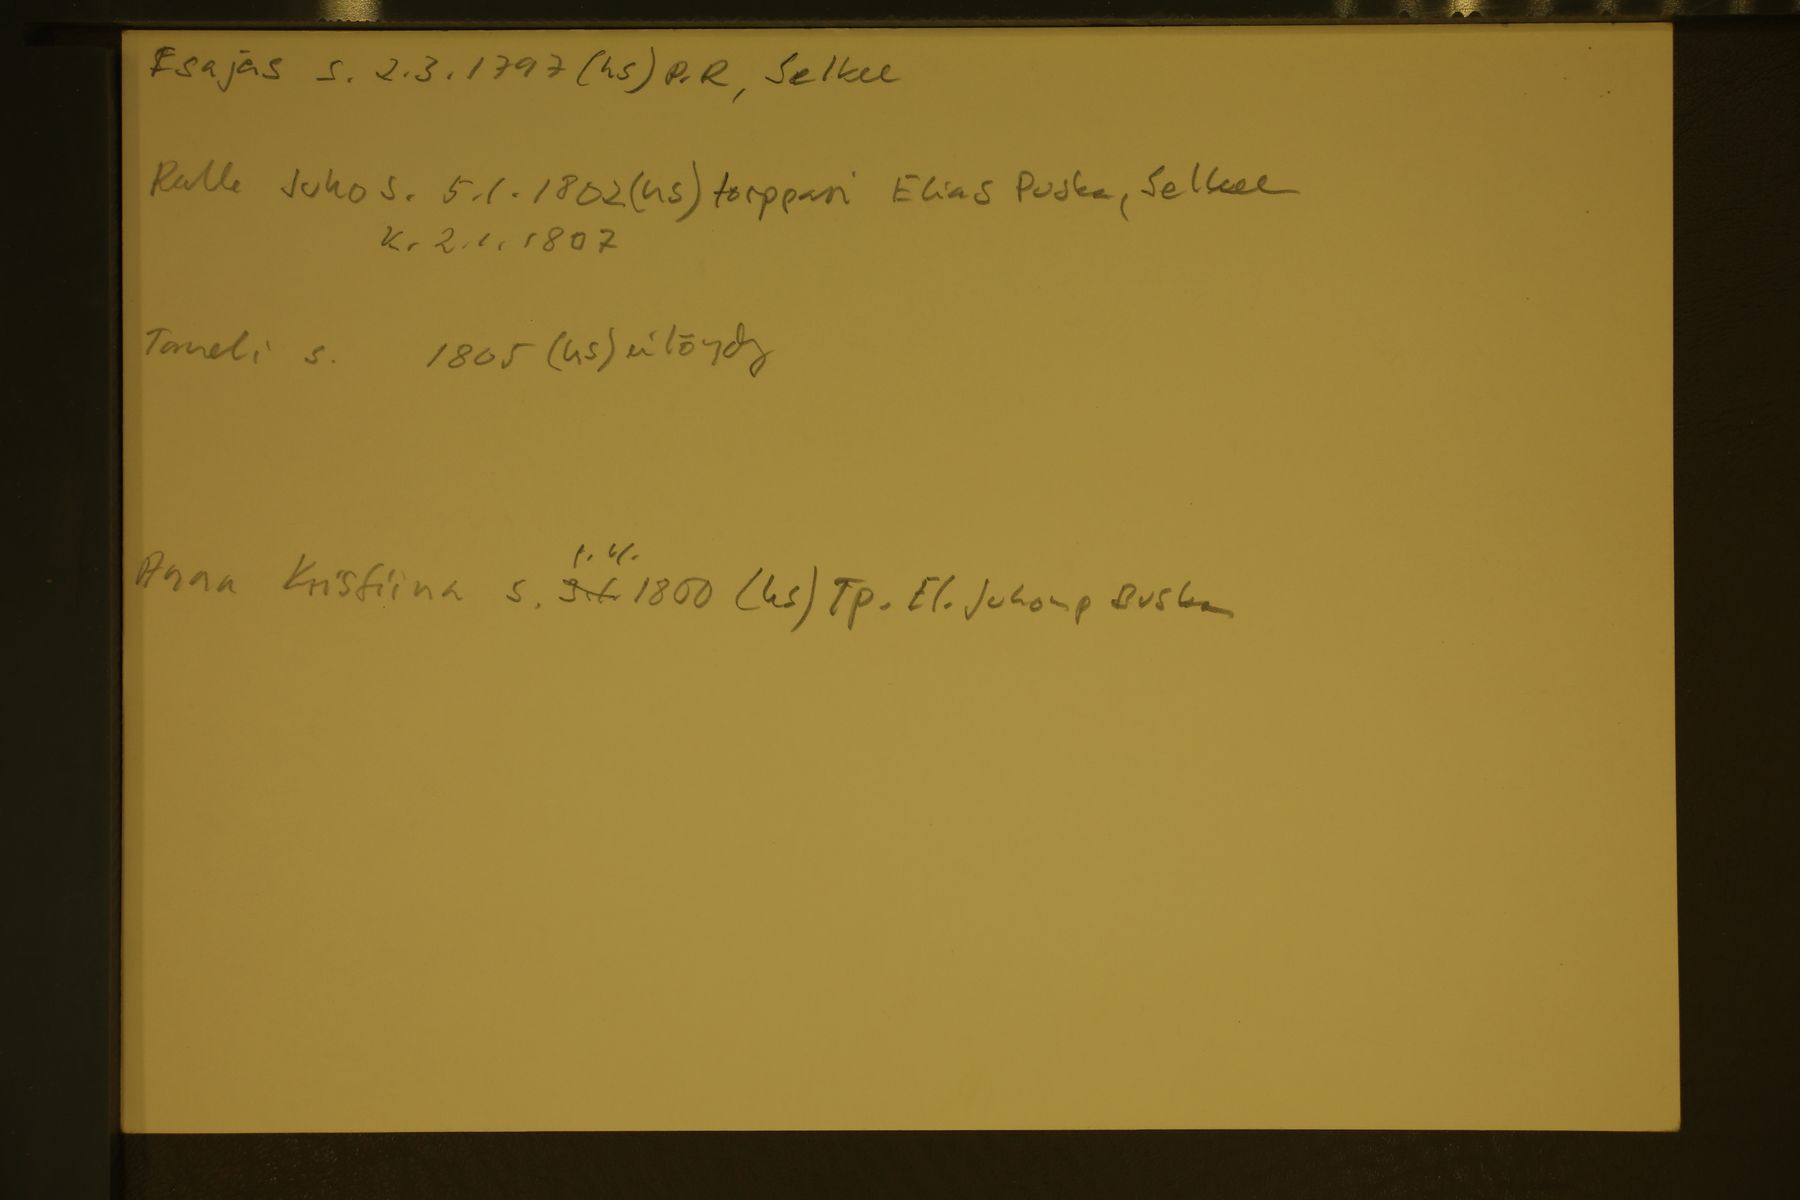 Esajas s. 2.3.1797 (hs) P.R, Selkee
Kalle Juho s. 5.1.1802 (hs) torppari Elias Puska, Selkee
k. 2.1.1807
Taneli s. 1805 (hs) ei löydy
1.4.
Anna Kristiina s. 1800 (hs) Tp. El. Juhonp Buska